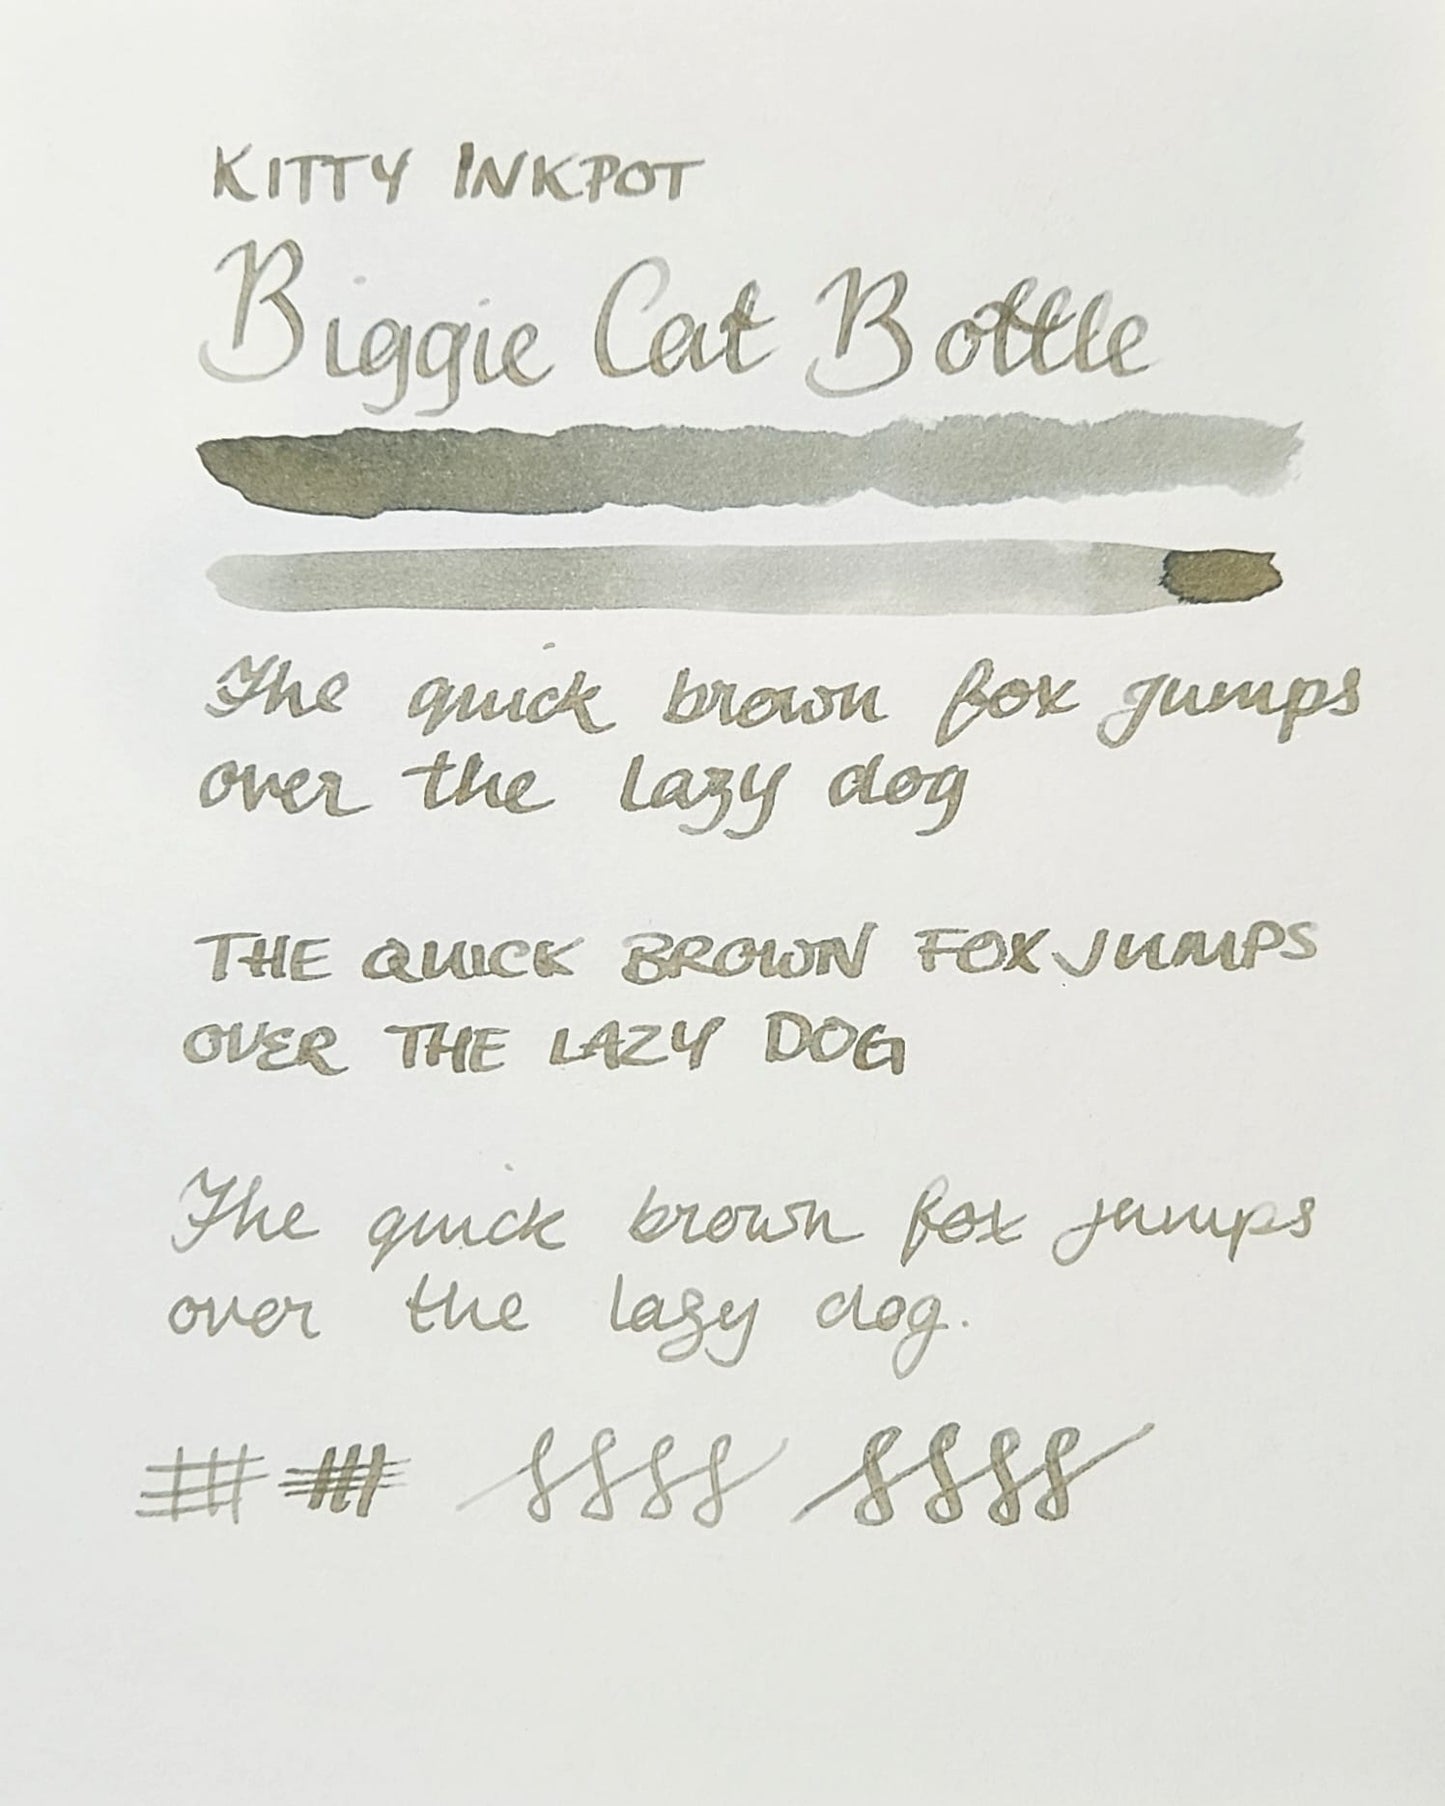 KITTY INKPOT
Biggie Cat Bottle
The quick brown fox jumps
over the lazy dog
THE QUICK BROWN FOX JUMPS
OVER THE LAZY DOG
The quick brown fox jumps
over the lazy dog.